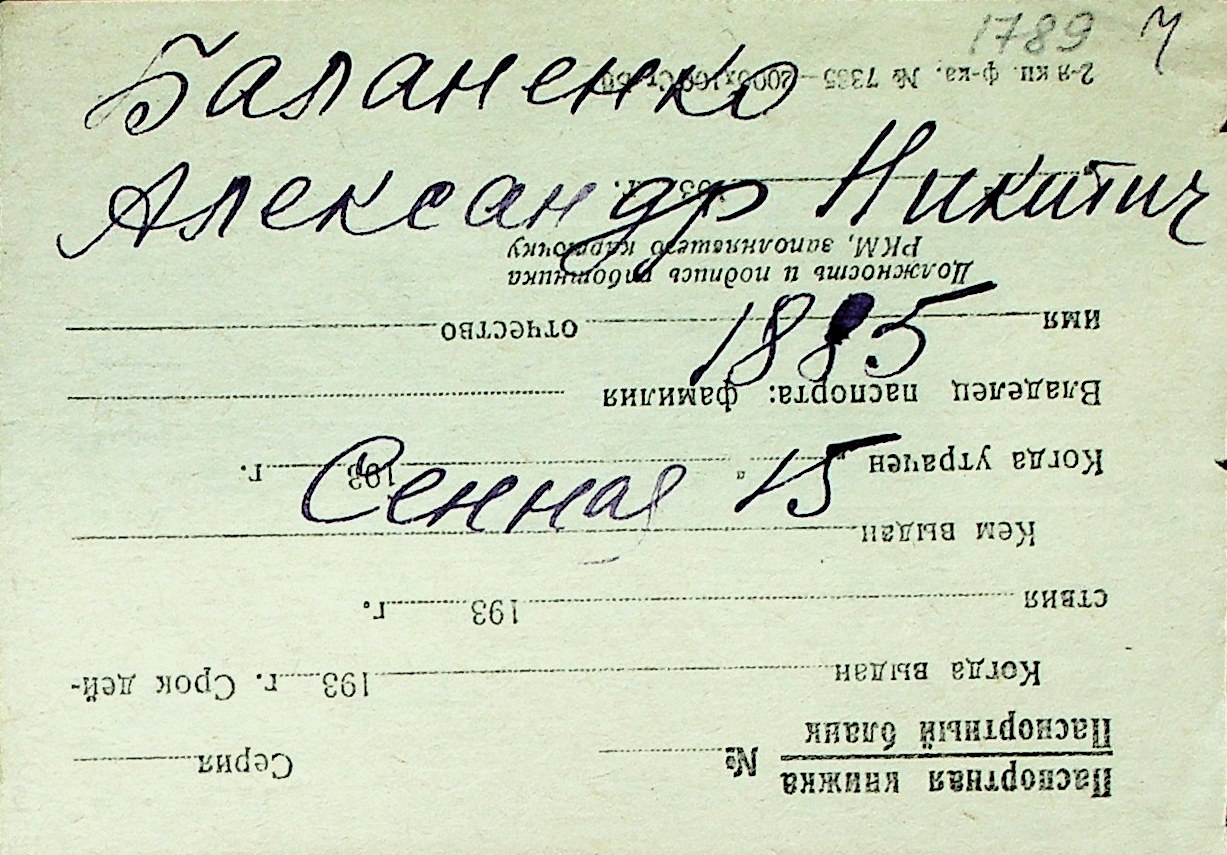 1789 ч
Баланенко
Александр Никитич
1885
Сенная 15
Паспортная книжка
Паспортный бланк № Серия
Когда выдан 193 г. Срок дей-
ствия 193 г.
Кем выдан
Когда утрачен „ “ 193 г.
Владелец паспорта: фамилия
имя отчество
Должность и подпись работника
РКМ, заполнявшего карточку
193 г.
2-я кн. ф-ка, № 7335